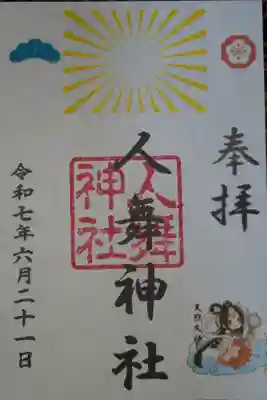 奉拝
人舞神社
人舞
神社
令和七年六月二十一日